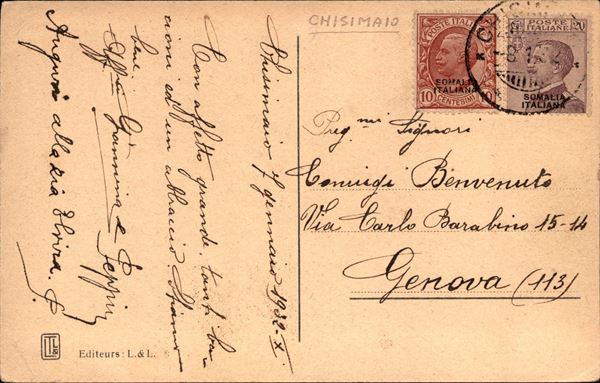 CHISIMAIO
POSTE ITALIANE
SOMALIA
ITALIANA
10 CENTESIMI 10
POSTE
ITALIANE
20
SOMALIA
ITALIANA
Chisimaio 7 gennaio 1932-X
Con affetto grande, tanti ba-
cioni ed un abbraccio. Stiamo
bene.
Aff.mi Giannina e Peppin
Auguri alla zia Elvira. P.
Preg.mi Signori
Coniugi Benvenuto
Via Carlo Barabino 15-14
Genova (113)
Editeurs: L.&L.